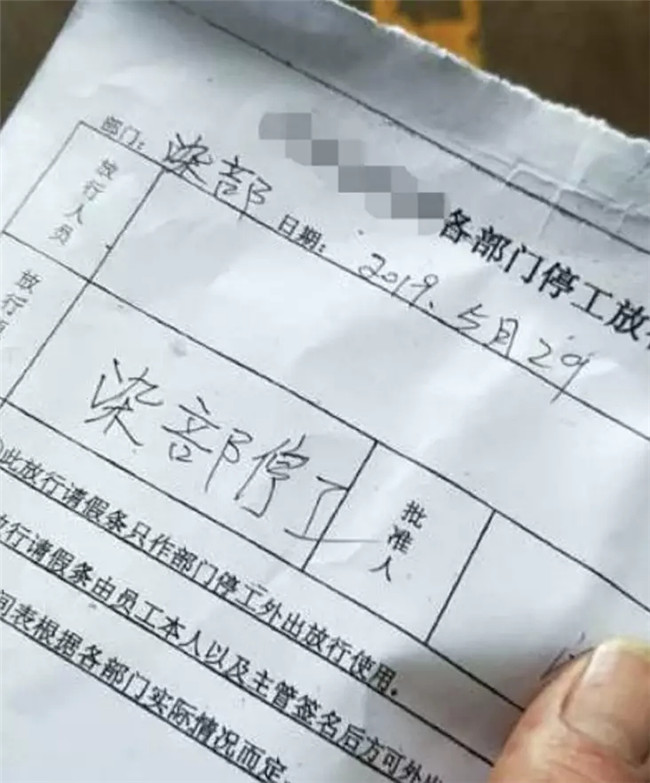 各部门停工放
部门：染部 日期：2019.5月29
放行人员
放行
染部停工
批准人
此放行请假条只作部门停工外出放行使用.
放行请假条由员工本人以及主管签名后方可外出
间表根据各部门实际情况而定.